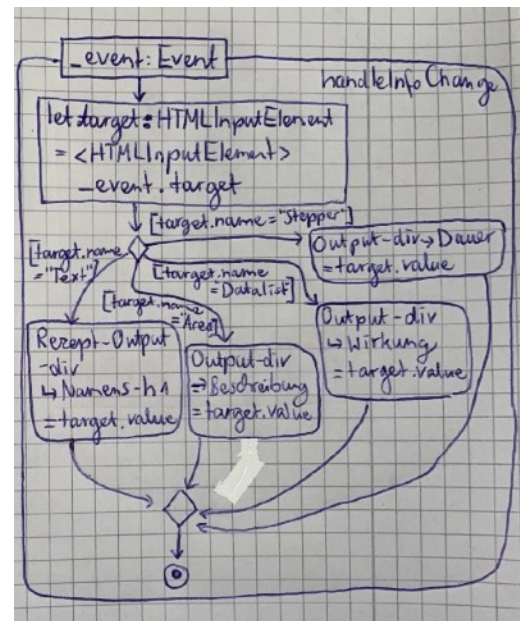 _event: Event
handleInfoChange
let target: HTMLInputElement
= <HTMLInputElement>
_event.target
[target.name="Stepper"]
Output-div→Dauer
= target.value
[target.name
="Text"]
[target.name
=Datalist]
[target.name
="Area]
Output-div
↳ Wirkung
= target.value
Rezept-Output
-div
↳ Namens-h1
= target.value
Output-div
→ Beschreibung
= target.value